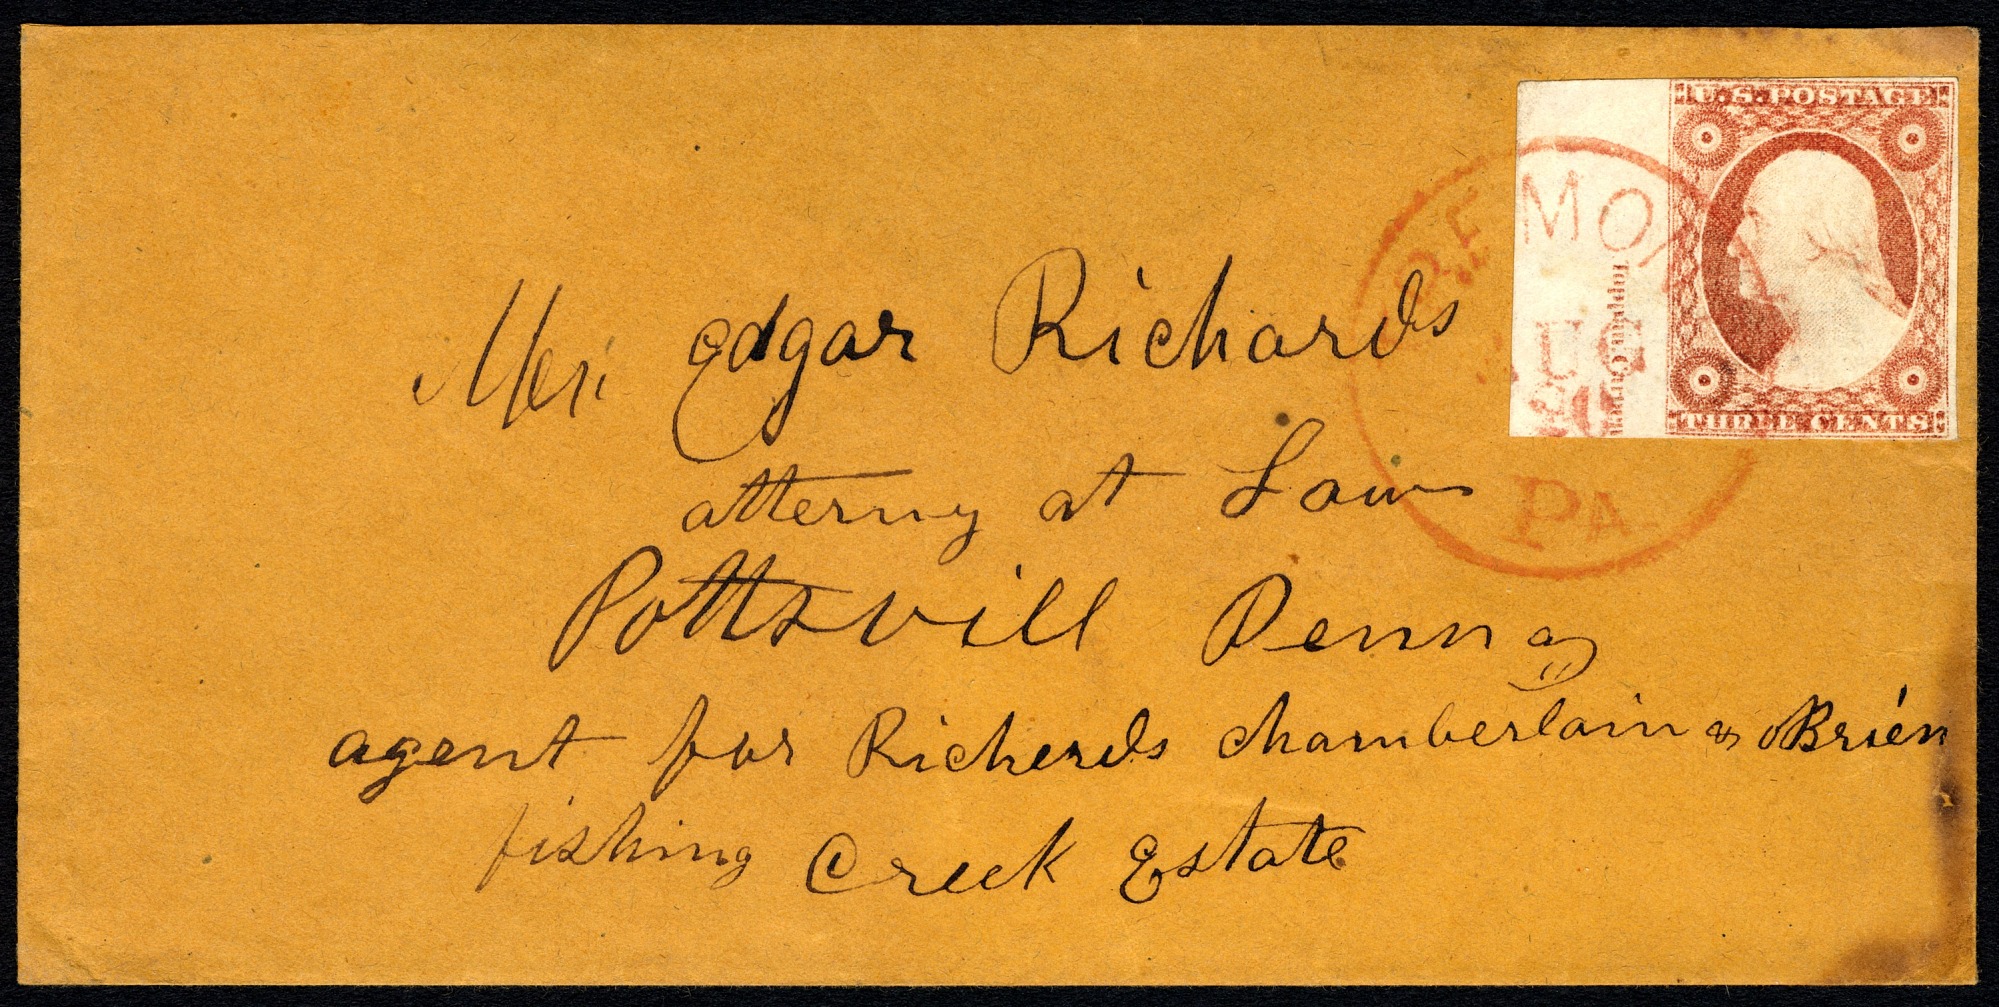 U.S. POSTAGE
THREE CENTS
PA.
edgar Richards
atterny at Law
Pottsvill Penna
agent for Richerds chamberlain & oBrien
fishing Creek Estate